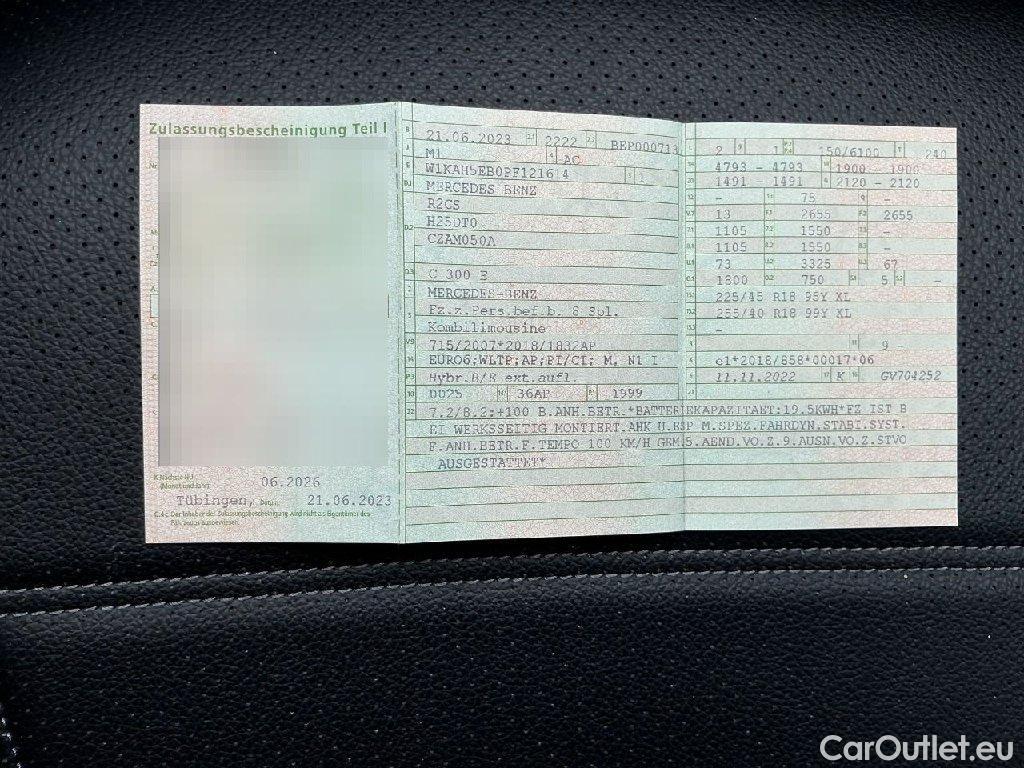 Zulassungsbescheinigung Teil I
06.2026
Tübingen, 21.06.2023
C.4c Der Inhaber der Zulassungsbescheinigung wird nicht als Eigentümer des
Fahrzeugs ausgewiesen.
21.06.2023 2222
M1 AC
MERCEDES BENZ
R2CS
CZAM050A
C 300 E
MERCEDES-BENZ
Fz.z.Pers.bef.b. 8 Spl.
Kombilimousine
715/2007*2018/1832AP
EURO6;WLTP;AP;PI/CI; M, N1 I
Hybr.B/E ext.aufl.
0025 36AP 1999
7.2/8.2:+100 B.ANH.BETR.*BATTERIEKAPAZITAET:19.5KWH*FZ IST B
EI WERKSSEITIG MONTIERT.AHK U.ESP M.SPEZ.FAHRDYN.STABI.SYST.
F.ANH.BETR.F.TEMPO 100 KM/H GEM.5.AEND.VO.Z.9.AUSN.VO.Z.STVO
AUSGESTATTET*
2 1 150/6100 240
4793 - 4793 1900 - 1900
1491 - 1491 2120 - 2120
- 75 -
13 2655 2655
1105 1550 -
1105 1550 -
73 3325 67
1800 750 5 -
225/45 R18 95Y XL
255/40 R18 99Y XL
-
9 -
e1*2018/858*00017*06
11.11.2022 K GV704252
CarOutlet.eu